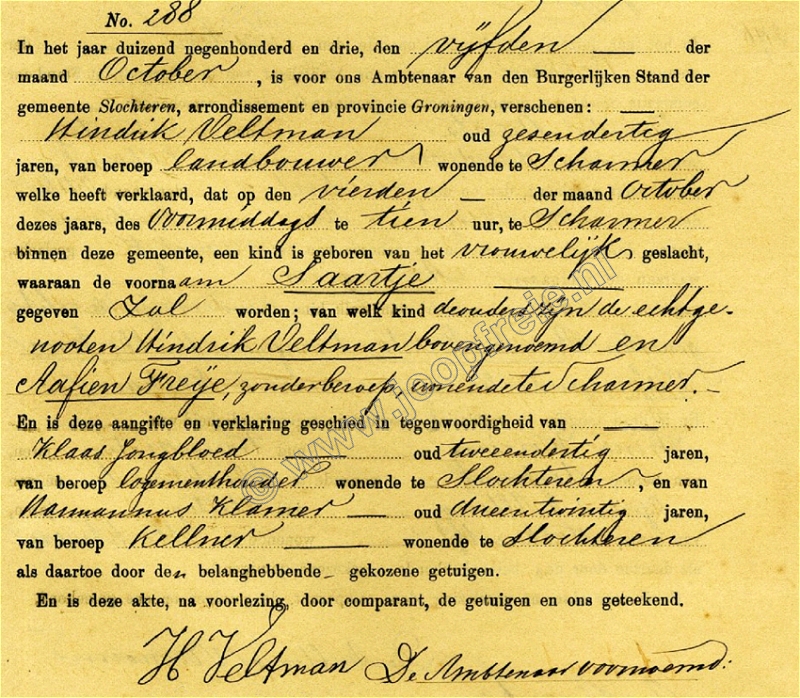 No. 288
In het jaar duizend negenhonderd en drie, den vijfden — der
maand October, is voor ons Ambtenaar van den Burgerlijken Stand der
gemeente Slochteren, arrondissement en provincie Groningen, verschenen: —
Hindrik Veltman oud zesendertig
jaren, van beroep landbouwer wonende te Scharmer
welke heeft verklaard, dat op den vierden — der maand October
dezes jaars, des Voormiddags te tien uur, te Scharmer
binnen deze gemeente, een kind is geboren van het vrouwelijk geslacht,
waaraan de voornaam Saartje —
gegeven zal worden; van welk kind de ouders zijn de echtge-
nooten Hindrik Veltman bovengenoemd en
Aafien Freije, zonder beroep, wonende te Scharmer. —
En is deze aangifte en verklaring geschied in tegenwoordigheid van —
Klaas Jongbloed — oud tweeendertig jaren,
van beroep logementhouder wonende te Slochteren, en van
Harmannus Klamer — oud drieentwintig jaren,
van beroep Kellner — wonende te Slochteren
als daartoe door den belanghebbende - gekozene getuigen.
En is deze akte, na voorlezing, door comparant, de getuigen en ons geteekend.
H. Veltman De Ambtenaar voornoemd:
© www.joopfreie.nl